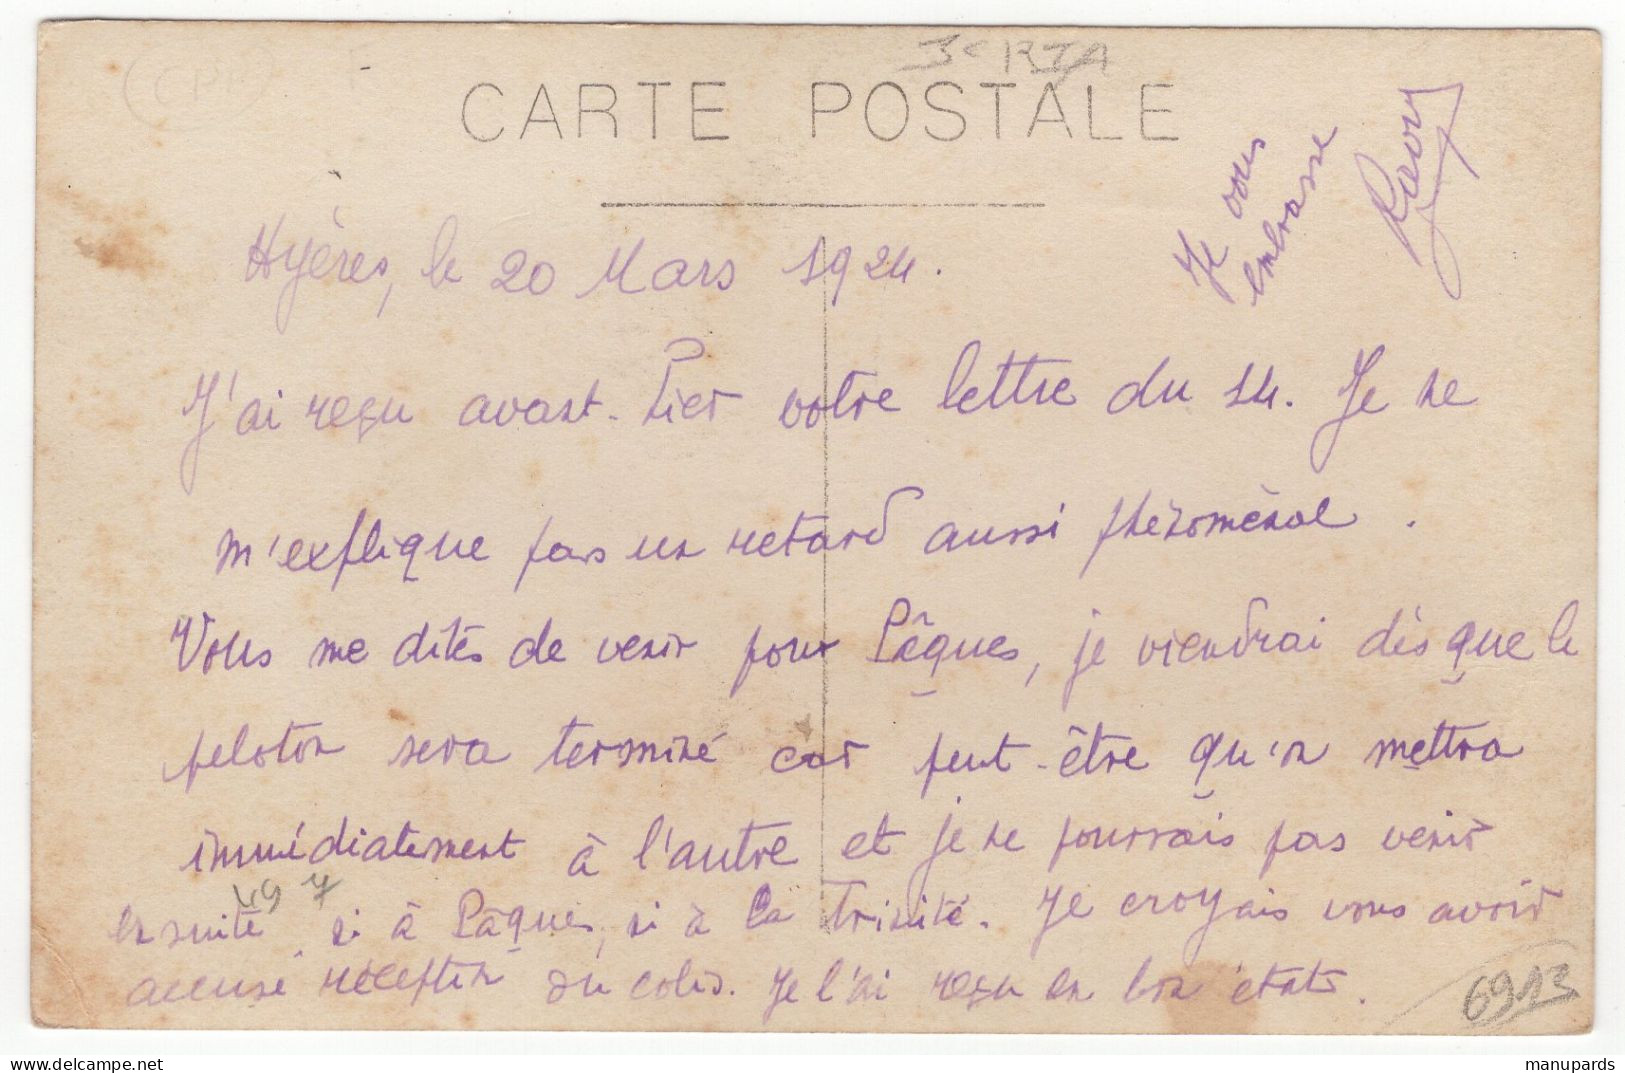 3e RIA
CARTE POSTALE
Je vous
embrasse
Hyères, le 20 Mars 1924.
J'ai reçu avant-hier votre lettre du 14. Je ne
m'explique pas un retard aussi phénoménal.
Vous me dites de venir pour Pâques, je viendrai dès que le
peloton sera terminé car peut-être qu'on mettra
immédiatement à l'autre et je ne pourrais pas venir
ensuite, ni à Pâques, ni à la Trinité. Je croyais vous avoir
accusé réception du colis. Je l'ai reçu en bon état.
497
6913
manupards